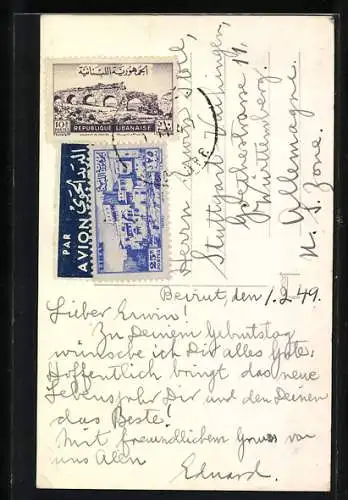 الجمهورية اللبنانية
REPUBLIQUE LIBANAISE
PAR
AVION
LIBAN
25
Herrn Erwin
Stuttgart-
Goethestrasse 19.
Württemberg.
Allemagne.
U. S. Zone.
Beirut, den 1.2.49.
Lieber Erwin!
Zu Deinem Geburtstag
wünsche ich Dir alles Gute.
Hoffentlich bringt das neue
Lebensjahr Dir und den Deinen
das Beste!
Mit freundlichem Gruss von
uns Allen
Eduard.